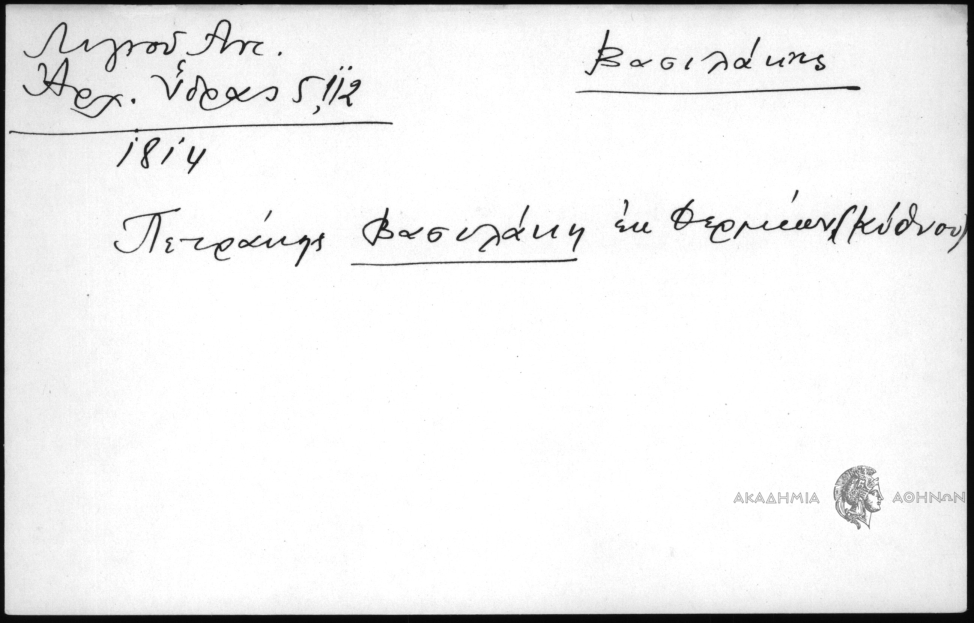 Λιγνού Αντ.
Ἀρχ. Ὕδρας 5, 112
Βασιλάκης
1814
Πετράκης Βασιλάκη ἐκ Θερμίων (Κύθνου)
ΑΚΑΔΗΜΙΑ ΑΘΗΝΩΝ